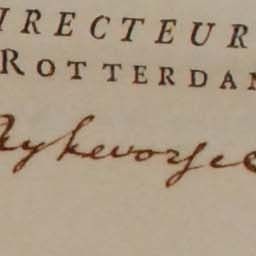 IRECTEUR
ROTTERDAM
Ryckevorsel